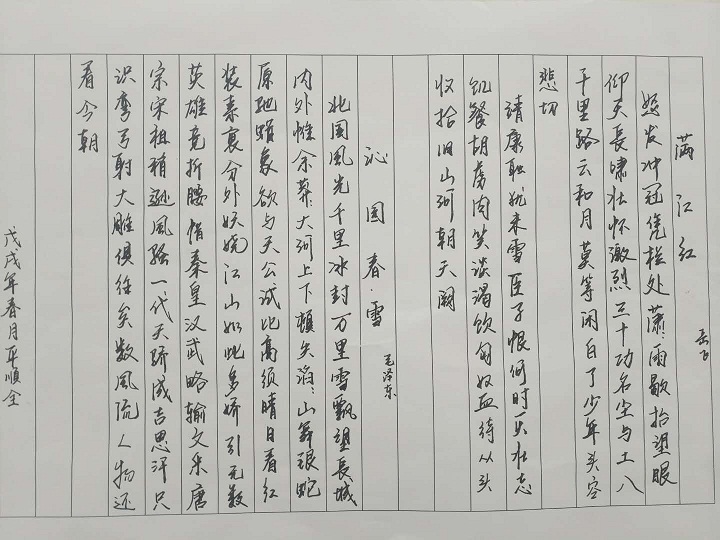 满江红
岳飞
怒发冲冠凭栏处潇:雨歇抬望眼
仰天長啸壮怀激烈三十功名尘与土八
千里路云和月莫等闲白了少年头空
悲切
靖康耻犹未雪臣子恨何时灭壮志
饥餐胡虏肉笑谈渴饮匈奴血待从头
收拾旧山河朝天阙
沁园春·雪
毛泽东
北国風光千里冰封万里雪飘望長城
内外惟余莽:大河上下顿失滔:山舞银蛇
原驰蜡象欲与天公试比高须晴日看红
装素裹分外妖娆江山如此多娇引无数
英雄竞折腰惜秦皇汉武略输文采唐
宗宋祖稍逊風骚一代天骄成吉思汗只
识弯弓射大雕俱往矣数風流人物还
看今朝
戊戌年春月平順全